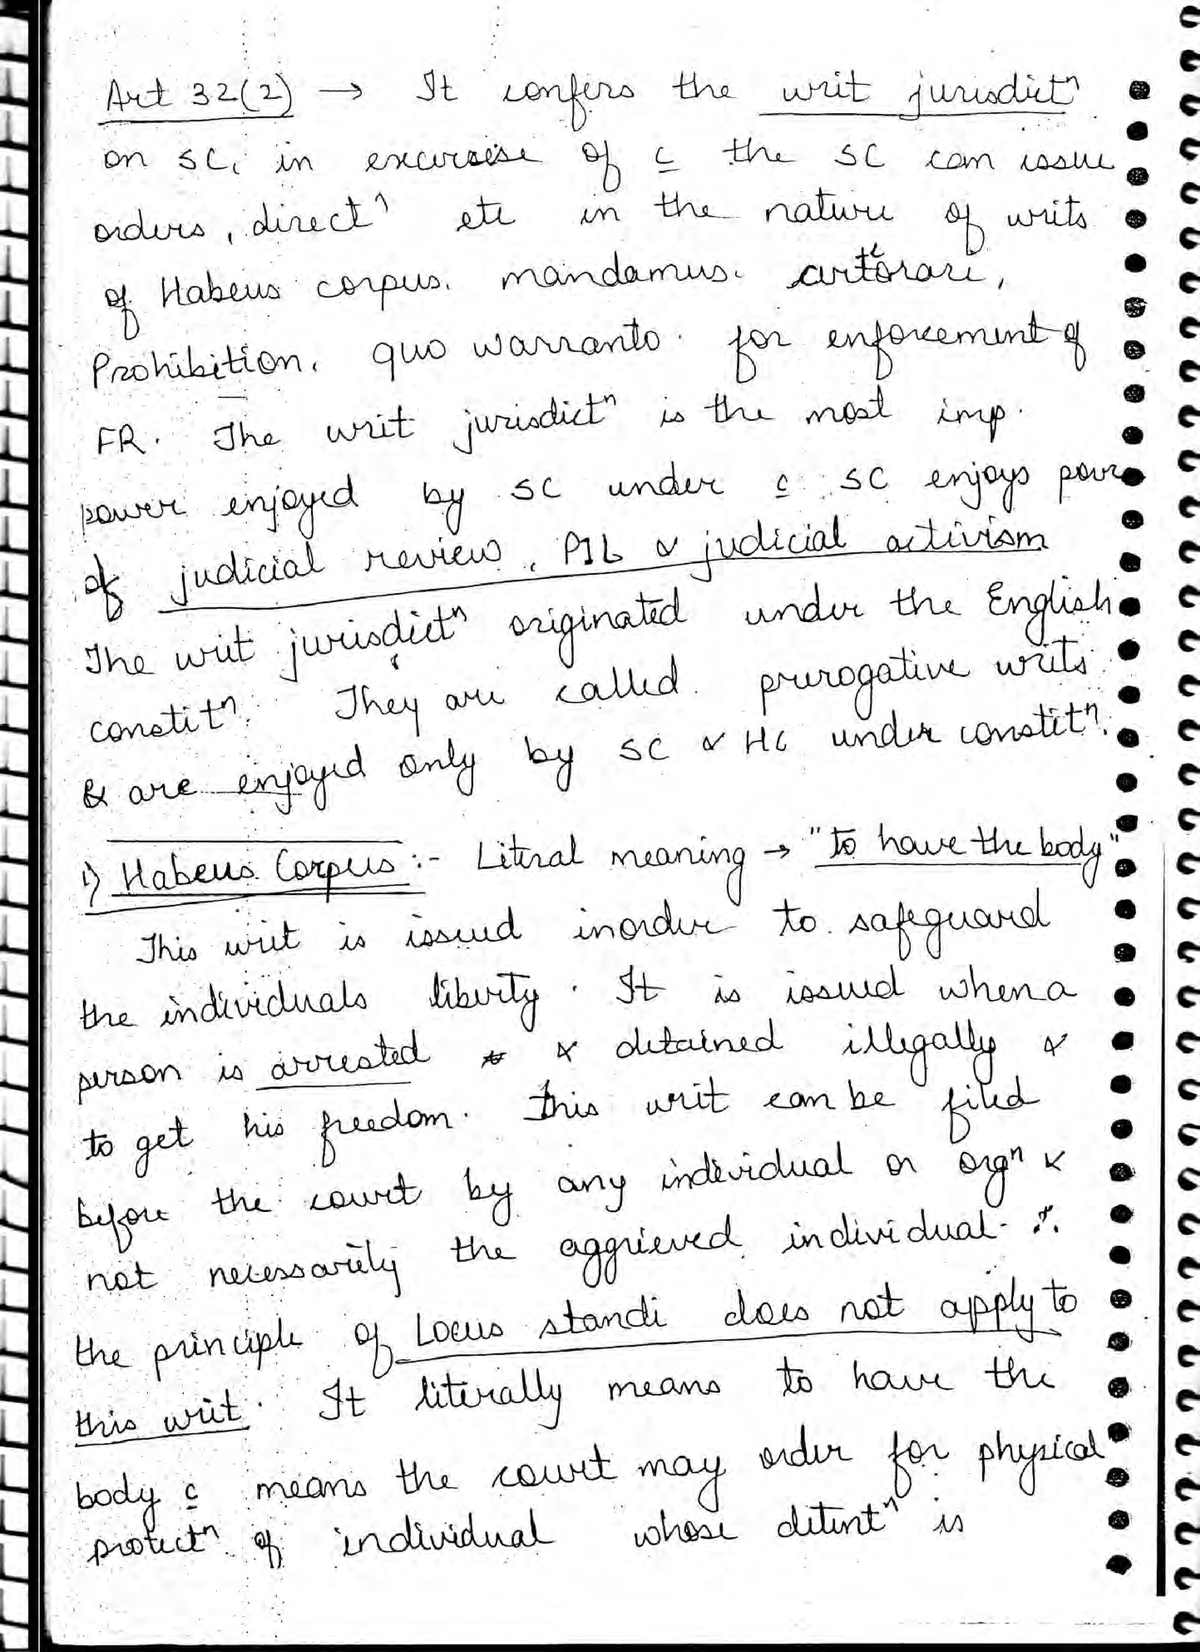 Art 32(2) → It confers the writ jurisdictⁿ
on SC, in excersise of c̲ the SC can issue
orders, directⁿ etc in the nature of writs
of Habeus corpus, mandamus, certiorari,
Prohibition, quo warranto for enforcement of
FR. The writ jurisdictⁿ is the most imp.
power enjoyed by SC under c̲. SC enjoys power
of judicial review, PIL & judicial activism
The writ jurisdictⁿ originated under the English
constitⁿ. They are called prerogative writs
& are enjoyed only by SC & HC under constitⁿ.
1) Habeus Corpus :- Literal meaning → "to have the body"
This writ is issued inorder to safeguard
the individuals liberty. It is issued when a
person is arrested & detained illegally &
to get his freedom. This writ can be filed
before the court by any individual or orgⁿ &
not necessarily the aggrieved individual ∴
the principle of Locus standi does not apply to
this writ. It literally means to have the
body c̲ means the court may order for physical
protectⁿ of individual whose detentⁿ is